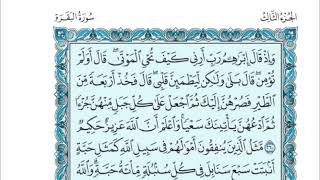 الجزء الثالث
سورة البقرة
وَإِذْ قَالَ إِبْرَٰهِـۧمُ رَبِّ أَرِنِي كَيْفَ تُحْيِ ٱلْمَوْتَىٰ قَالَ أَوَلَمْ
تُؤْمِن قَالَ بَلَىٰ وَلَٰكِن لِّيَطْمَئِنَّ قَلْبِي قَالَ فَخُذْ أَرْبَعَةً مِّنَ
ٱلطَّيْرِ فَصُرْهُنَّ إِلَيْكَ ثُمَّ ٱجْعَلْ عَلَىٰ كُلِّ جَبَلٍ مِّنْهُنَّ جُزْءًا
ثُمَّ ٱدْعُهُنَّ يَأْتِينَكَ سَعْيًا وَٱعْلَمْ أَنَّ ٱللَّهَ عَزِيزٌ حَكِيمٌ
٢٦٠ مَّثَلُ ٱلَّذِينَ يُنفِقُونَ أَمْوَٰلَهُمْ فِي سَبِيلِ ٱللَّهِ كَمَثَلِ حَبَّةٍ
أَنۢبَتَتْ سَبْعَ سَنَابِلَ فِي كُلِّ سُنۢبُلَةٍ مِّا۟ئَةُ حَبَّةٍ وَٱللَّهُ